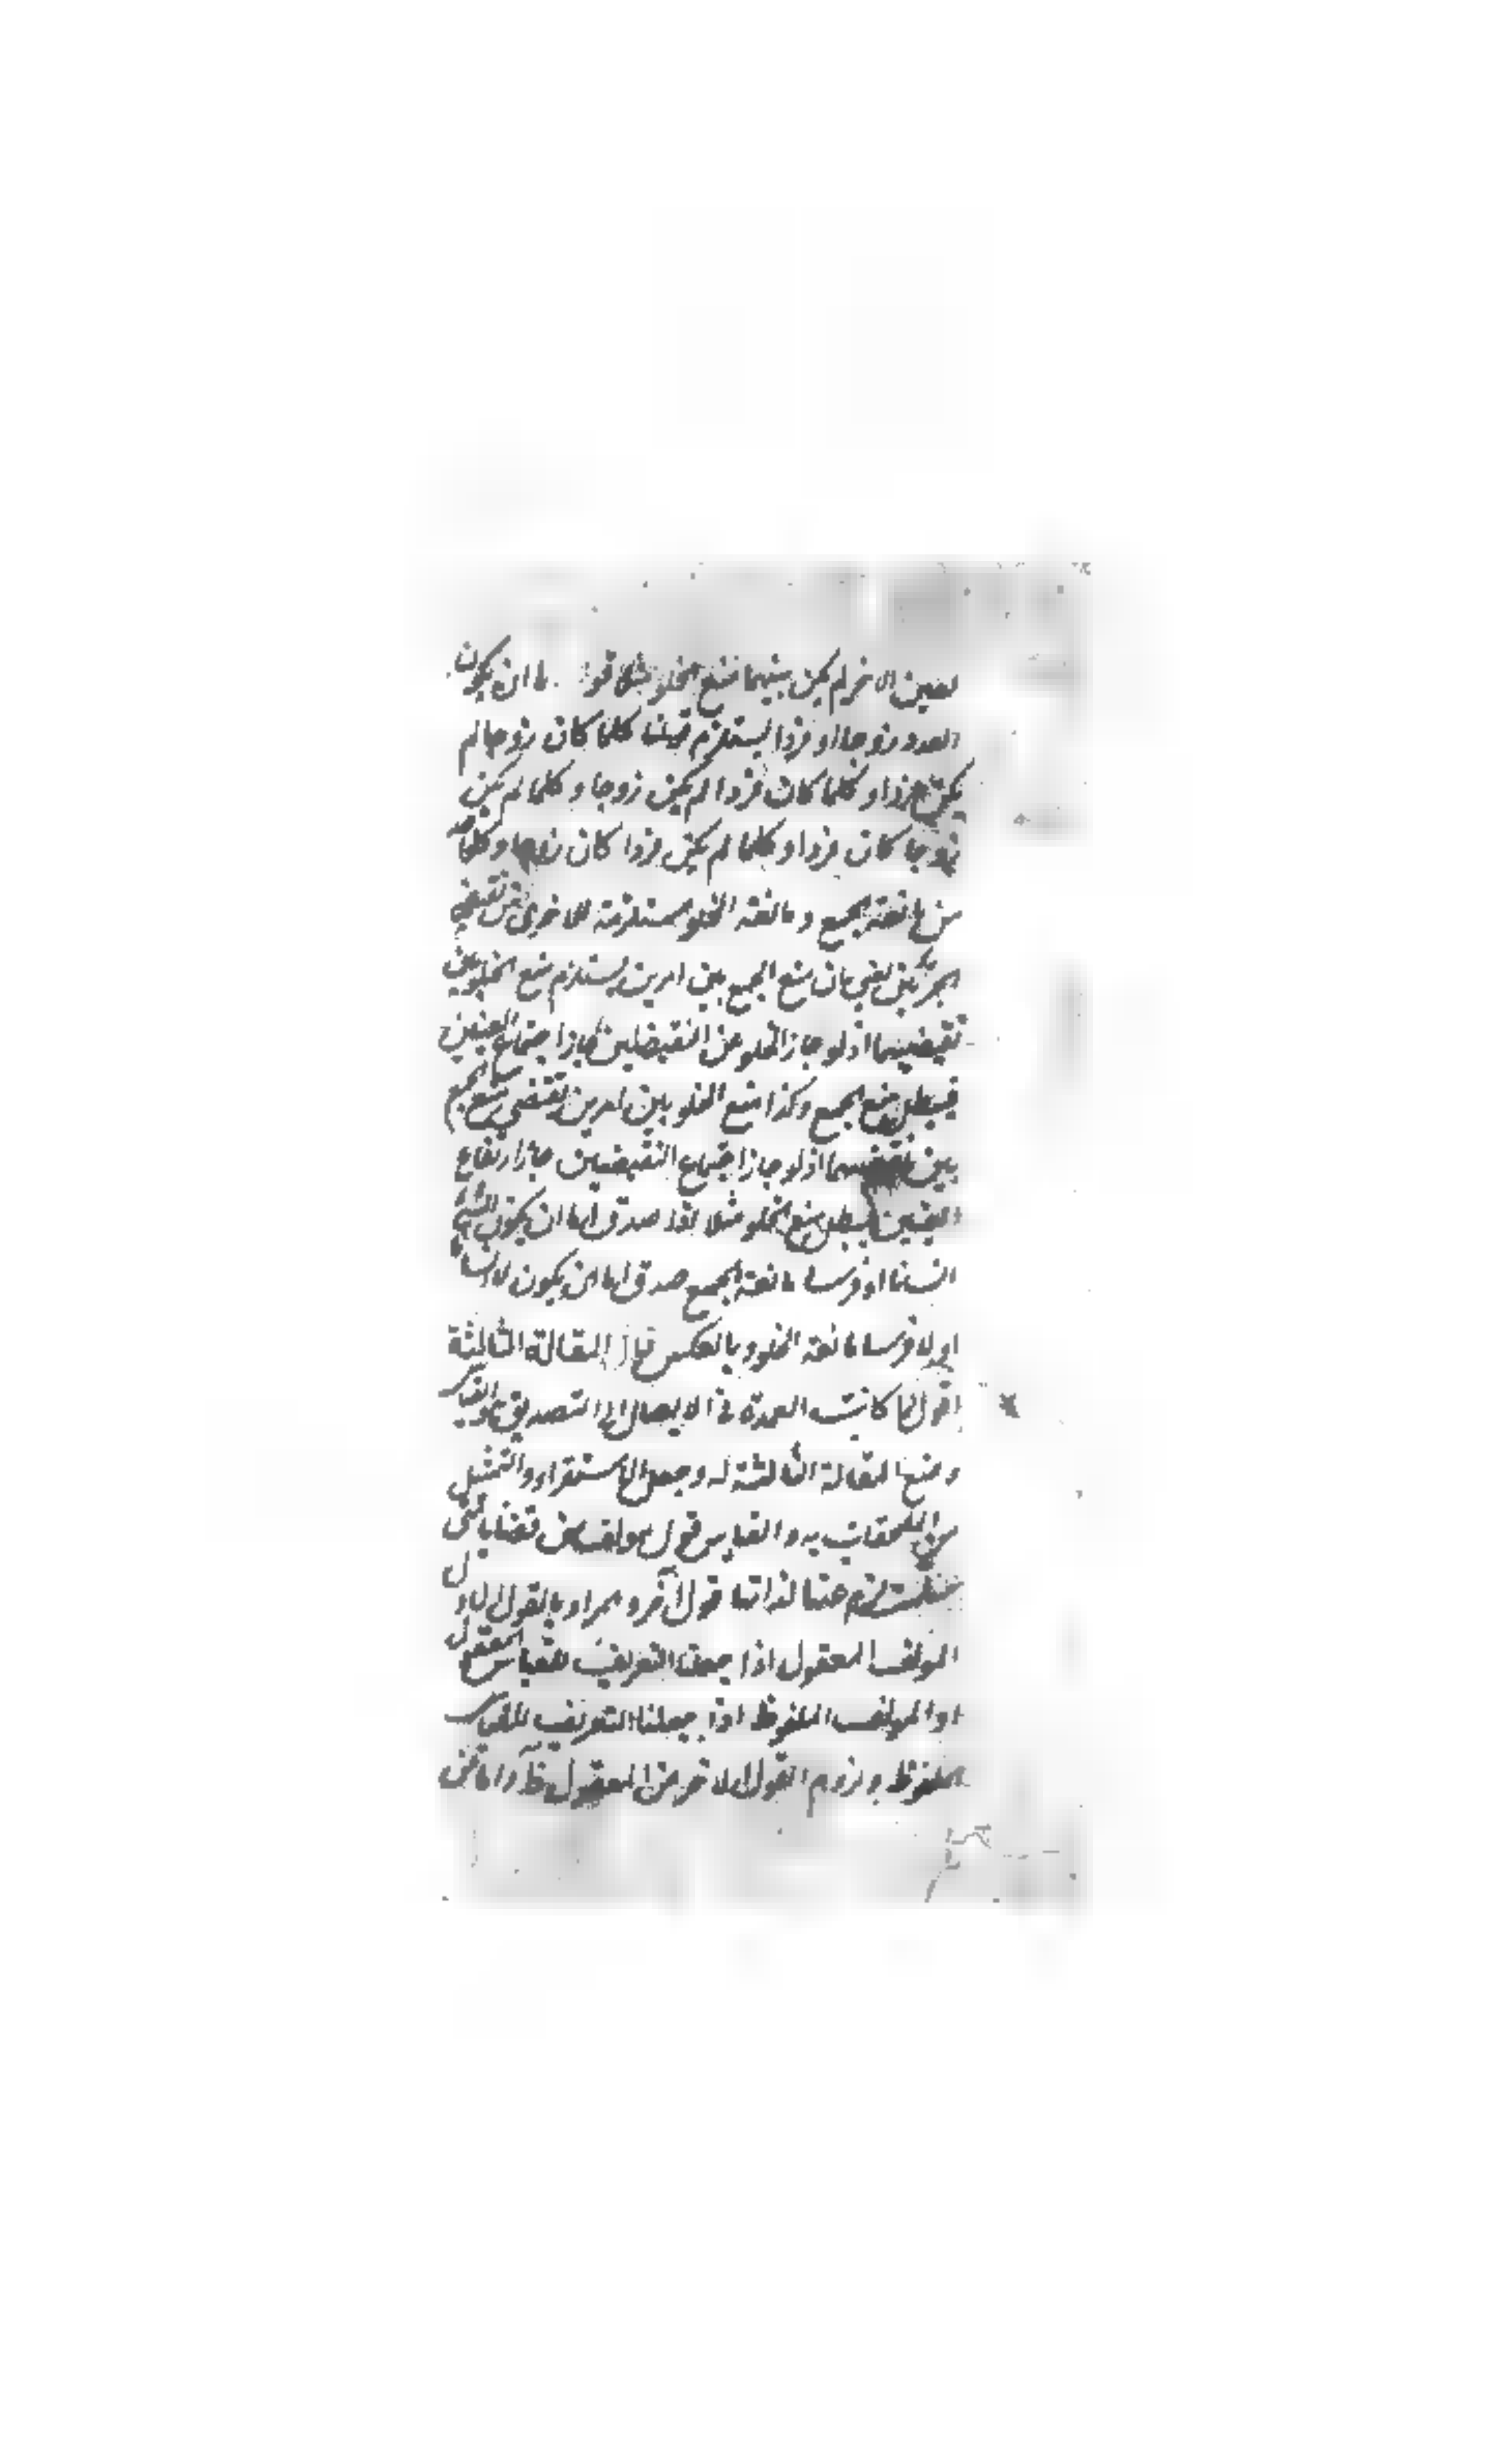 لعين الاخر لم يكن بينهما منع الخلو مثلا قولنا اما ان يكون
العدد زوجا او فردا يستلزم قولنا كلما كان زوجا لم
يكن فردا و كلما كان فردا لم يكن زوجا و كلما لم يكن
زوجا كان فردا و كلما لم يكن فردا كان زوجا و كل
من مانعة الجمع و مانعة الخلو مستلزمة للاخرى من نقيضي
الجزئين يعني بان منع الجمع بين امرين يستلزم منع الخلو بين
نقيضيهما اذ لو جاز الخلو عن النقيضين لجاز اجتماع العينين
فيبطل منع الجمع وكذا منع الخلو بين امرين يقتضي منع الجمع
بين نقيضيهما اذ لو جاز اجتماع النقيضين جاز ارتفاع
العينين فيبطل منع الخلو مثلا اذا صدق اما ان يكون الشئ
انسانا او فرسا مانعة الجمع صدق اما ان يكون لا انسانا
او لا فرسا مانعة الخلو و بالعكس قال المقالة الثالثة
اقول لما كانت العمدة في الايصال الى التصديق هو القياس
وضع المقالة الثالثة له و جعل الاستقراء والتمثيل
من الملحقات به و القياس قول مولف من قضايا متى
سلمت لزم عنها لذاتها قول آخر و المراد بالقول الاول
المولف المعقول اذا جعلنا التعريف للقياس المعقول
او المولف الملفوظ اذا جعلنا التعريف للقياس
الملفوظ و لزوم القول الاخر من المعقول ظ و اما من